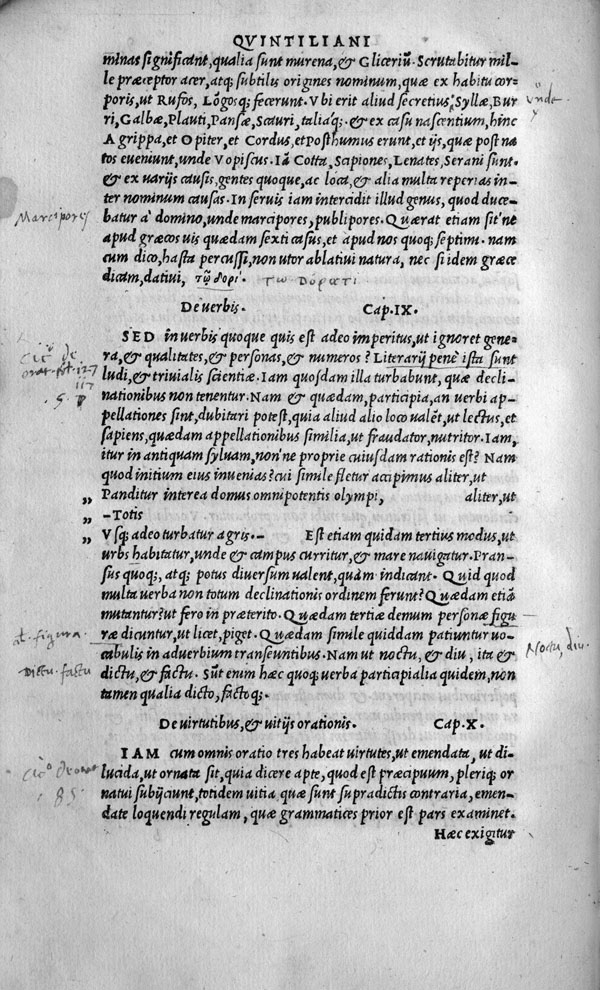 QVINTILIANI
minas significãnt, qualia sunt murena, & Gliceriũ. Scrutabitur mil-
le præceptor acer, atq; subtilis origines nominum, quæ ex habitu cor-
poris, ut Rufos, Lõgosq; fecerunt. Vbi erit aliud secretius, Syllæ, Bur
unde
ri, Galbæ, Plauti, Pansæ, Scauri, taliaq;. & ex casu nascentium, hinc
Agrippa, et Opiter, et Cordus, et Posthumus erunt, et ijs, quæ post na
tos eueniunt, unde Vopiscus. Iã Cotta, Scipiones, Lenates, Serani sunt.
& ex uarijs causis, gentes quoque, ac loca, & alia multa reperias in-
ter nominum causas. In seruis iam intercidit illud genus, quod duce-
Marcipores
batur à domino, unde marcipores, publipores. Quærat etiam sit'ne
apud græcos uis quædam sexti casus, et apud nos quoq; septimi. nam
cum dico, hasta percussi, non utor ablatiui natura, nec si idem græce
dicam, datiui, τῷ δορί. τω δορατι
De uerbis. Cap.IX.
SED in uerbis quoque quis est adeo imperitus, ut ignoret gene-
ra, & qualitates, & personas, & numeros? Literarij penè ista sunt
ludi, & triuialis scientiæ. Iam quosdam illa turbabunt, quæ decli-
nationibus non tenentur. Nam & quædam, participia, an uerbi ap-
pellationes sint, dubitari potest, quia aliud alio loco ualẽt, ut lectus, et
sapiens, quædam appellationibus similia, ut fraudator, nutritor. Iam,
itur in antiquam syluam, non'ne proprie cuiusdam rationis est? Nam
quod initium eius inuenias? cui simile fletur accipimus aliter, ut
„ Panditur interea domus omnipotentis olympi, aliter, ut
„ -Totis
„ Vsq; adeo turbatur agris.- Est etiam quidam tertius modus, ut
urbs habitatur, unde & campus curritur, & mare nauigatur. Pran-
sus quoq;, atq; potus diuersum ualent, quàm indicant. Quid quod
multa uerba non totum declinationis ordinem ferunt? Quædam etiã
mutantur? ut fero in præterito. Quædam tertiæ demum personæ figu
figura.
ræ dicuntur, ut licet, piget. Quædam simile quiddam patiuntur uo-
Noctu, diu.
cabulis in aduerbium transeuntibus. Nam ut noctu, & diu, ita &
Dictu. factu
dictu, & factu. Sũt enim hæc quoq; uerba participialia quidem, non
tamen qualia dicto, factoq;.
De uirtutibus, & uitijs orationis. Cap.X.
IAM cum omnis oratio tres habeat uirtutes, ut emendata, ut di-
lucida, ut ornata sit, quia dicere apte, quod est præcipuum, pleriq; or
natui subijciunt, totidem uitia quæ sunt supradictis contraria, emen-
date loquendi regulam, quæ grammatices prior est pars examinet.
Hæc exigitur